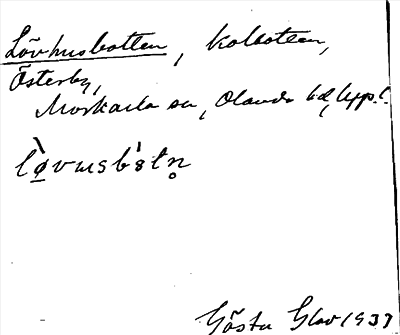 Lövhusbotten, kolbotten,
Österby,
Morkarla sn, Olands hd, Uppl.
Gösta Glav 1937